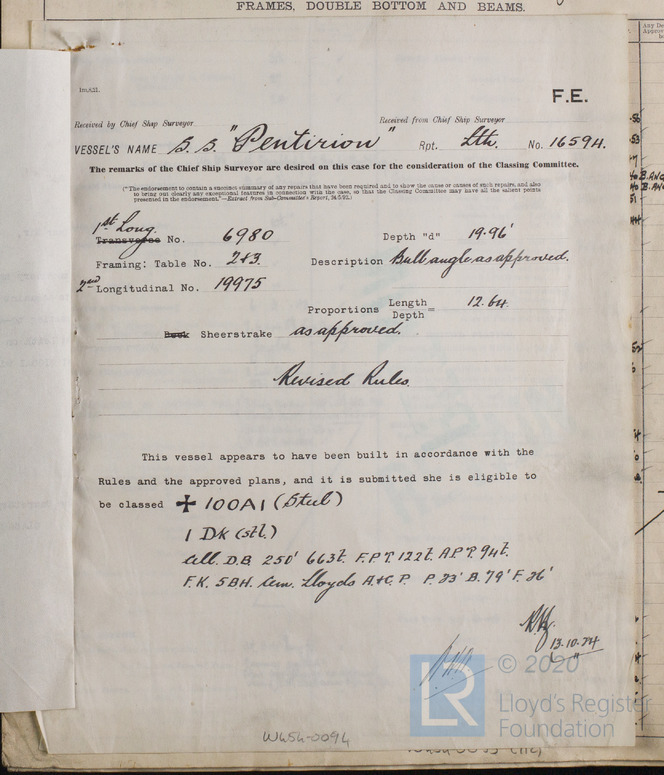 FRAMES, DOUBLE BOTTOM AND BEAMS.
F.E.
Received by Chief Ship Surveyor
Received from Chief Ship Surveyor
VESSEL'S NAME S.S. "Pentirion" Rpt. Lth. No. 16594.
The remarks of the Chief Ship Surveyor are desired on this case for the consideration of the Classing Committee.
("The endorsement to contain a succinct summary of any repairs that have been required and to show the cause or causes of such repairs, and also
to bring out clearly any exceptional features in connection with the case, so that the Classing Committee may have all the salient points
presented in the endorsement."—Extract from Sub-Committee's Report, 24/5/92.)
1st Long.
Transverse No. 6980 Depth "d" 19.96'
Framing: Table No. 2+3 Description Bulb angle as approved.
2nd Longitudinal No. 19975
Proportions Length/Depth = 12.64
Deck Sheerstrake as approved.
Revised Rules.
This vessel appears to have been built in accordance with the
Rules and the approved plans, and it is submitted she is eligible to
be classed ✠ 100A1 (Steel)
1 DK (stl.)
Cell. D.B. 250' 663t. F.P.T. 122t. A.P.T. 94t.
F.K. 5BH. Cem. Lloyds A.&C.P. P. 33' B. 79' F. 36'
13.10.24
LR
© 2020
Lloyd's Register
Foundation
W454-0094